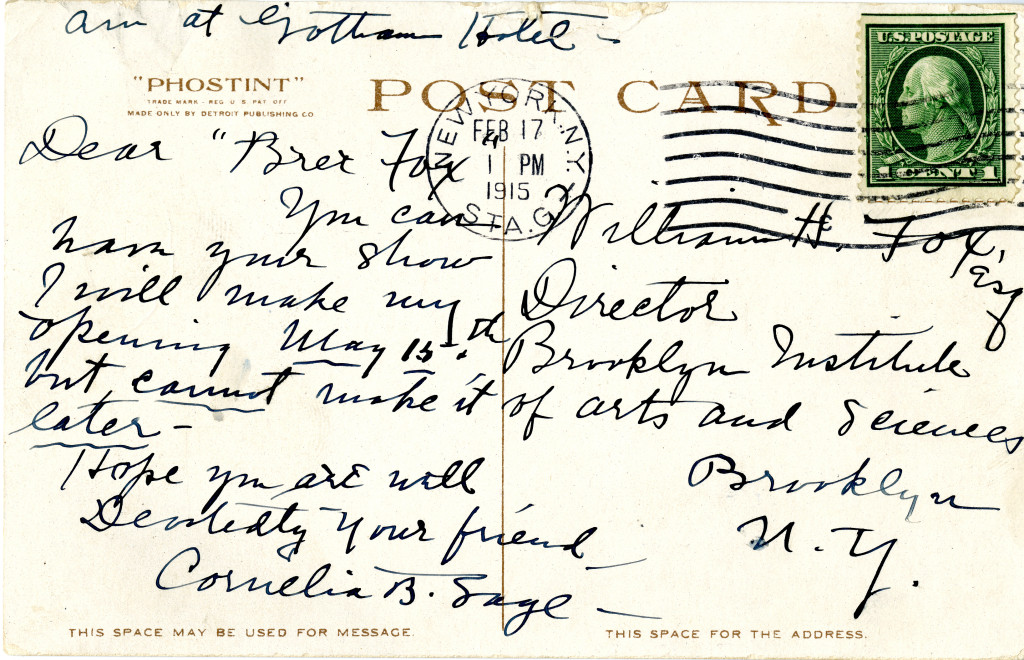 am at Gotham Hotel -
"PHOSTINT"
TRADE MARK - REG U S PAT OFF
MADE ONLY BY DETROIT PUBLISHING CO
POST CARD
U.S. POSTAGE
1 CENT 1
NEW YORK, N.Y.
FEB 17
1 PM
1915
STA. G
Dear "Brer Fox
You can
have your show
I will make my
opening May 15th
but cannot make it
later -
Hope you are well
Devotedly your friend
Cornelia B. Sage -
William H. Fox, Esq
Director
Brooklyn Institute
of Arts and Sciences
Brooklyn
N. Y.
THIS SPACE MAY BE USED FOR MESSAGE.
THIS SPACE FOR THE ADDRESS.